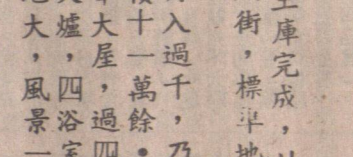 庫完成，
街，標準地
入過千，乃
十一萬餘。
大屋，過四
爐，四浴室
大，風景一